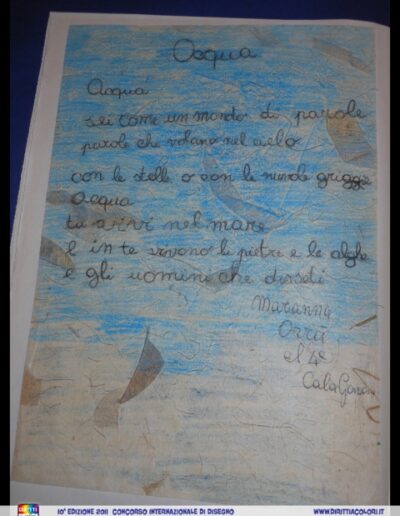 Acqua
Acqua
sei come un mondo di parole
parole che volano nel cielo
con le stelle o con le nuvole griggie
Acqua
tu vivi nel mare
E in te vivono le pietre e le alghe
e gli uomini che disseti
Marianna
Orrù
cl 4ª
10ª EDIZIONE 2011 CONCORSO INTERNAZIONALE DI DISEGNO
WWW.DIRITTIACOLORI.IT